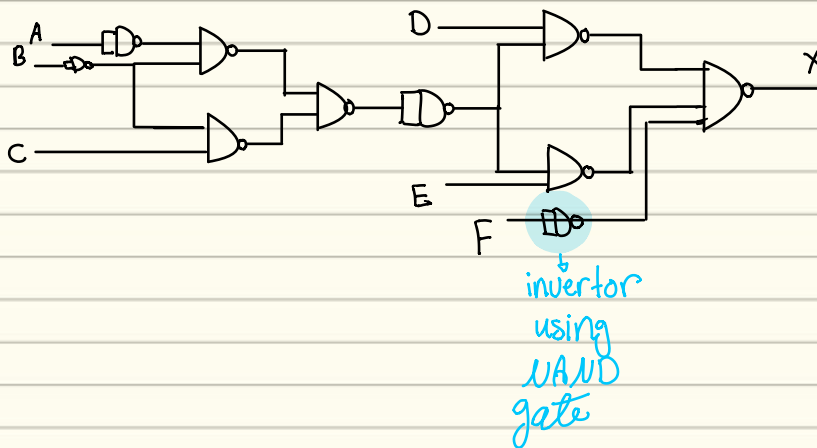 A
B
C
D
E
F
X
invertor
using
NAND
gate